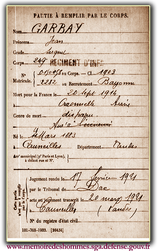 PARTIE À REMPLIR PAR LE CORPS.
Nom GARBAY
Prénoms Jean
Grade
Corps 249 RÉGIMENT D'INF
N° au Corps. — Cl. 1903
Matricule. au Recrutement Bayonne
Mort pour la France le 20 sept 1914
à Craonnelle Aisne
Genre de mort disparu
Né le 2 Mars 1883
à Département Landes
Arr¹ municipal (p¹ Paris et Lyon),
à défaut rue et N°.
Jugement rendu le 17 février 1921
par le Tribunal de Dax
acte ou jugement transcrit le 20 mars 1921
à (Landes)
N° du registre d'état civil
www.memoiredeshommes.sga.defense.gouv.fr